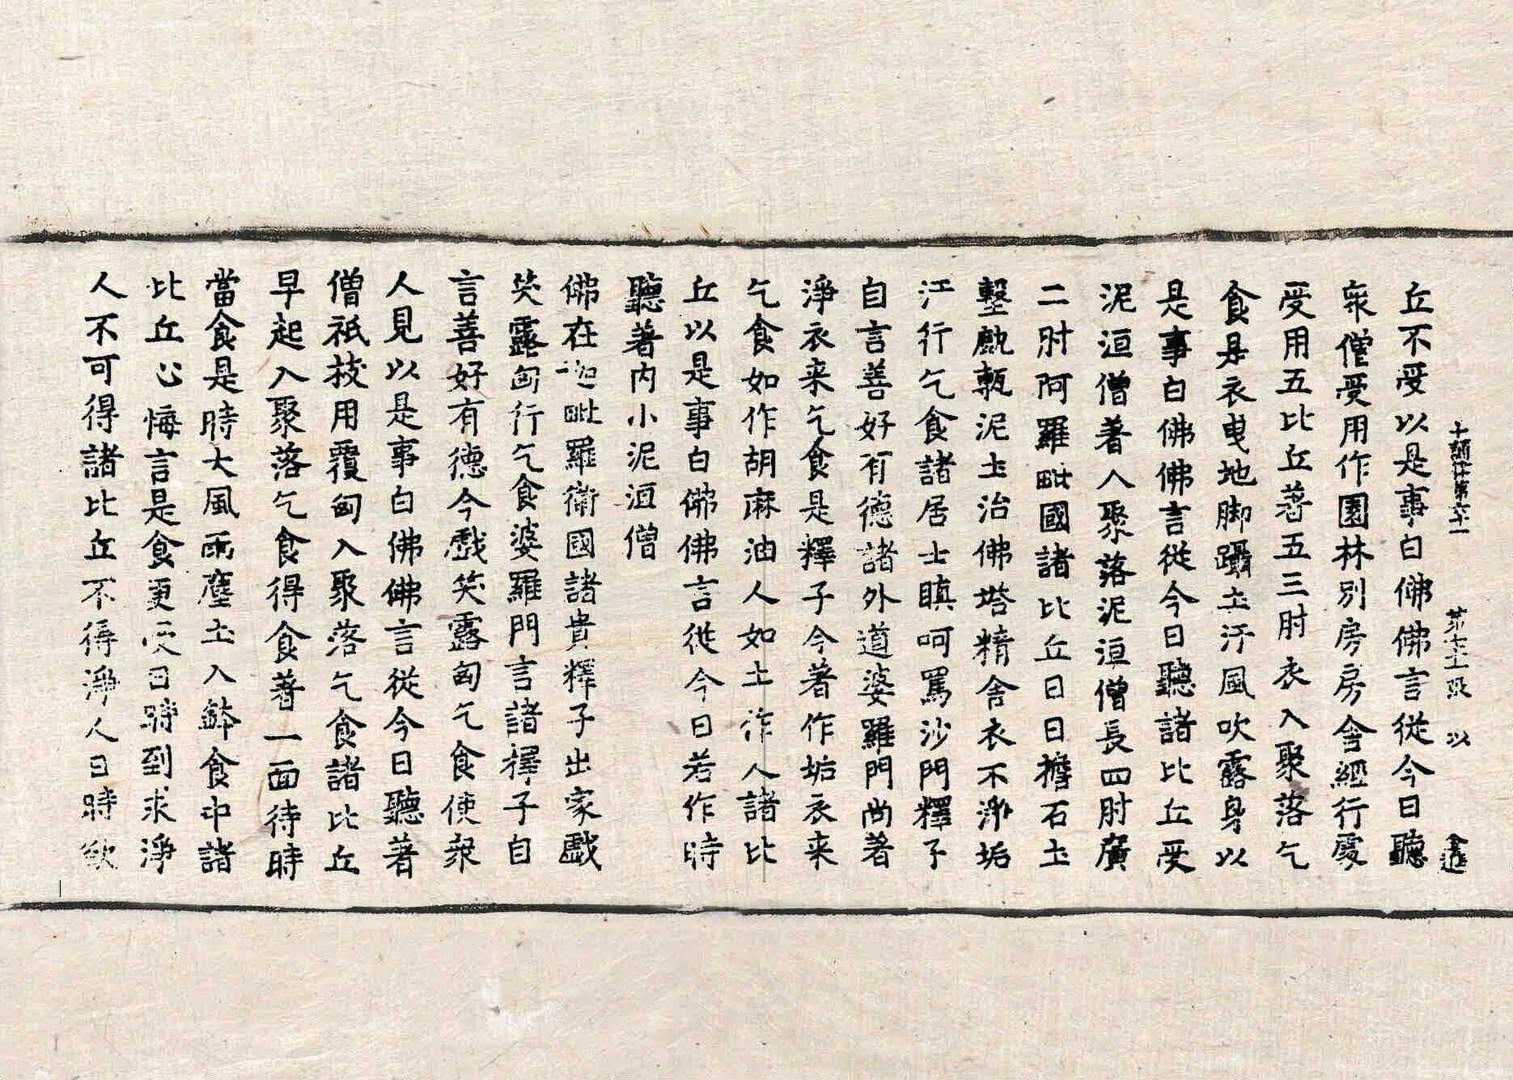 十誦律第六十一 第十七張 以
丘不受以是事白佛佛言從今日聽
衆僧受用作園林別房房舍經行處
受用五比丘著五三肘衣入聚落乞
食是衣曳地脚躡土汙風吹露身以
是事白佛佛言從今日聽諸比丘受
泥洹僧著入聚落泥洹僧長四肘廣
二肘阿羅毗國諸比丘日日擔石土
墼甎泥土治佛塔精舍衣不淨垢
汙行乞食諸居士瞋呵罵沙門釋子
自言善好有德諸外道婆羅門尚著
淨衣来乞食是釋子今著作垢衣来
乞食如作胡麻油人如土作人諸比
丘以是事白佛佛言從今日若作時
聽著内小泥洹僧
佛在迦毗羅衛國諸貴釋子出家戲
笑露匈行乞食婆羅門言諸釋子自
言善好有德今戲笑露匈乞食使衆
人見以是事白佛佛言從今日聽著
僧祇枝用覆匈入聚落乞食諸比丘
早起入聚落乞食得食著一面待時
當食是時大風雨塵土入鉢食中諸
比丘心悔言是食更受日時到求淨
人不可得諸比丘不得淨人日時欲